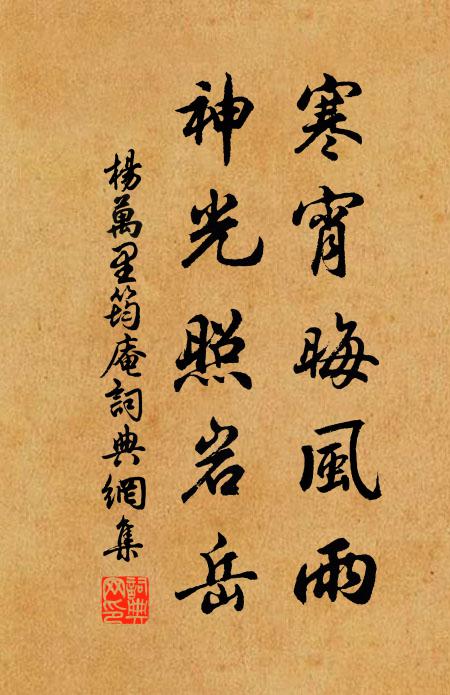 寒宵晦風雨
神光照岩岳
楊萬里筠庵詞典網集
詞典
网印